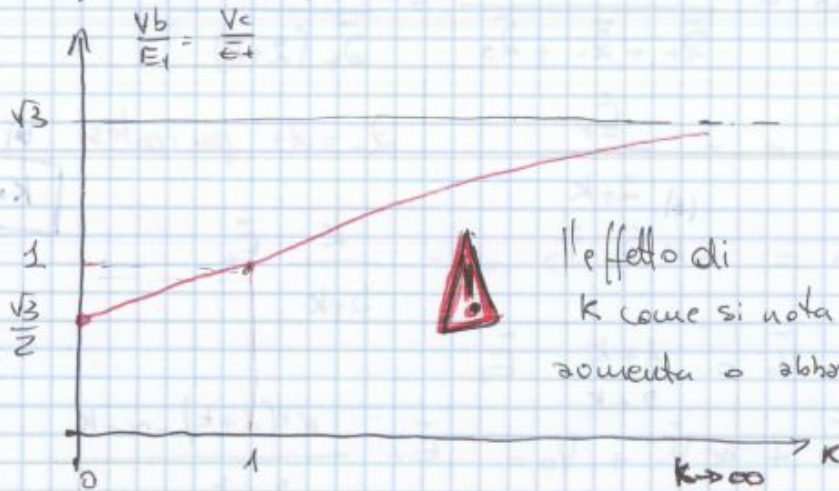 Vb/E₁ = Vc/E₁
√3
1
√3/2
l'effetto di
K come si nota
aumenta o abba
0 1 K→∞ K